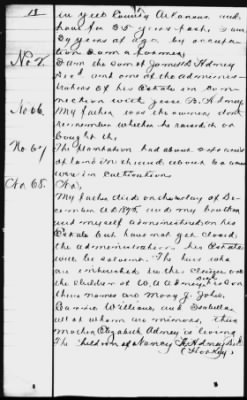 in Yell County, Arkansas and
have for 35 years past, I am
39 years of age by occupa
tion I am a farmer
No 2. I am the son of James H Adney
Decd and one of the adminis-
trators of his Estate in con
nection with Jesse B. Adney
No 66. My father was the owner dont
remember whether he raised it or
bought the
No 67 The plantation had about
of land in it and about
were in cultivation
No. 68. No,
My father died on the day of De-
cember A D 1875 and my brother
and myself administered on his
Estate but have not yet closed
the administration. his Estate
will be solvent. The heirs who
are interested in this claim are
the children of W. A Adney decd
thus names are Mary J. John,
William, and Isabella
all of whom are minors, their
mother Elizabeth Adney is living
The children of Nancy Adney Decd